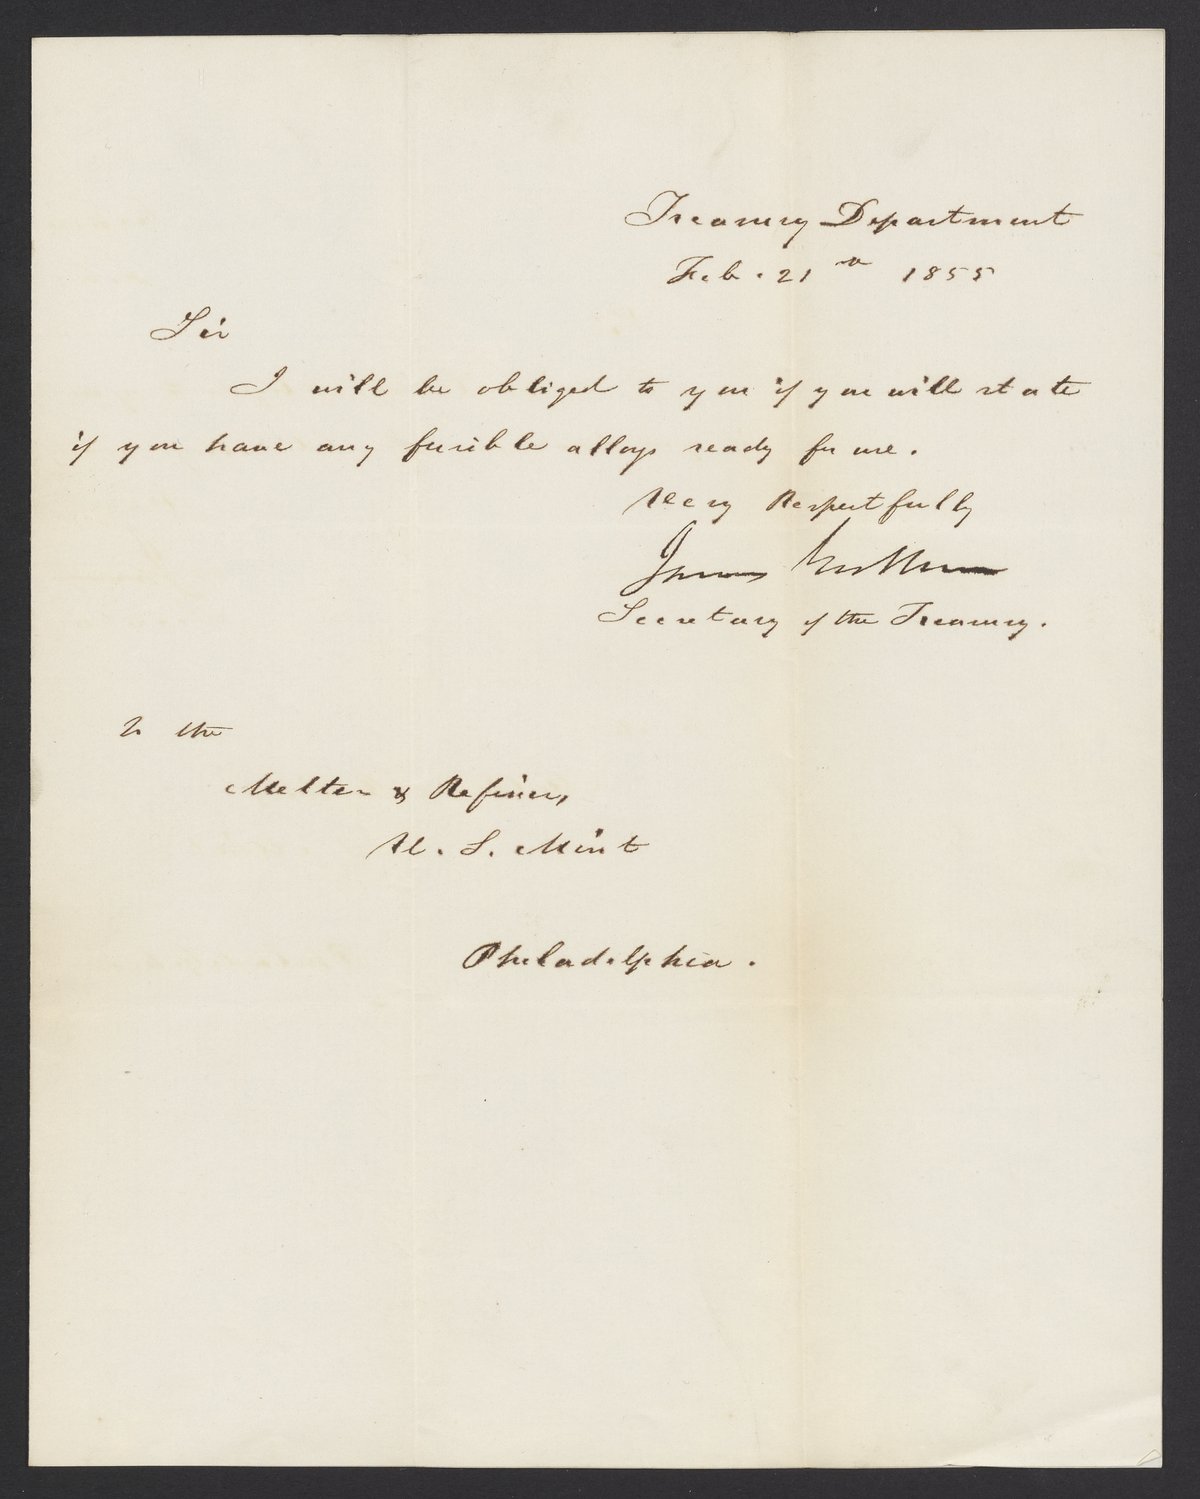 Treasury Department
Feb. 21st 1855
Sir
I will be obliged to you if you will state
if you have any fusible alloys ready for use.
Very Respectfully
James Guthrie
Secretary of the Treasury.
To the
Melter & Refiner,
U. S. Mint
Philadelphia.